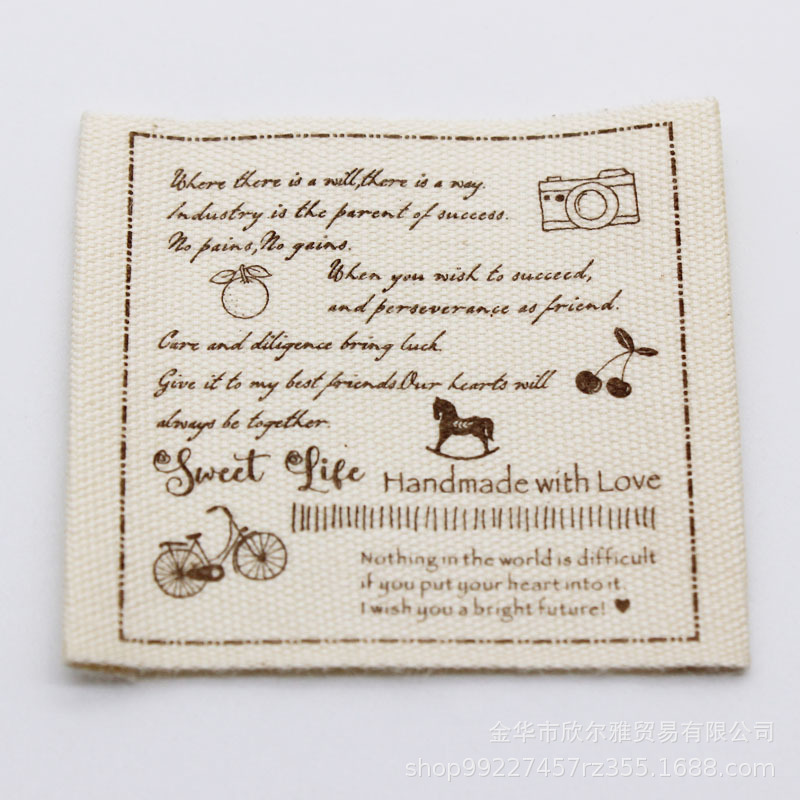 Where there is a will,there is a way.
Industry is the parent of success.
No pains,No gains.
When you wish to succeed,
and perseverance as friend.
Care and diligence bring luck.
Give it to my best friends.Our hearts will
always be together.
Sweet Life
Handmade with Love
Nothing in the world is difficult
if you put your heart into it.
I wish you a bright future!
金华市欣尔雅贸易有限公司
shop99227457rz355.1688.com